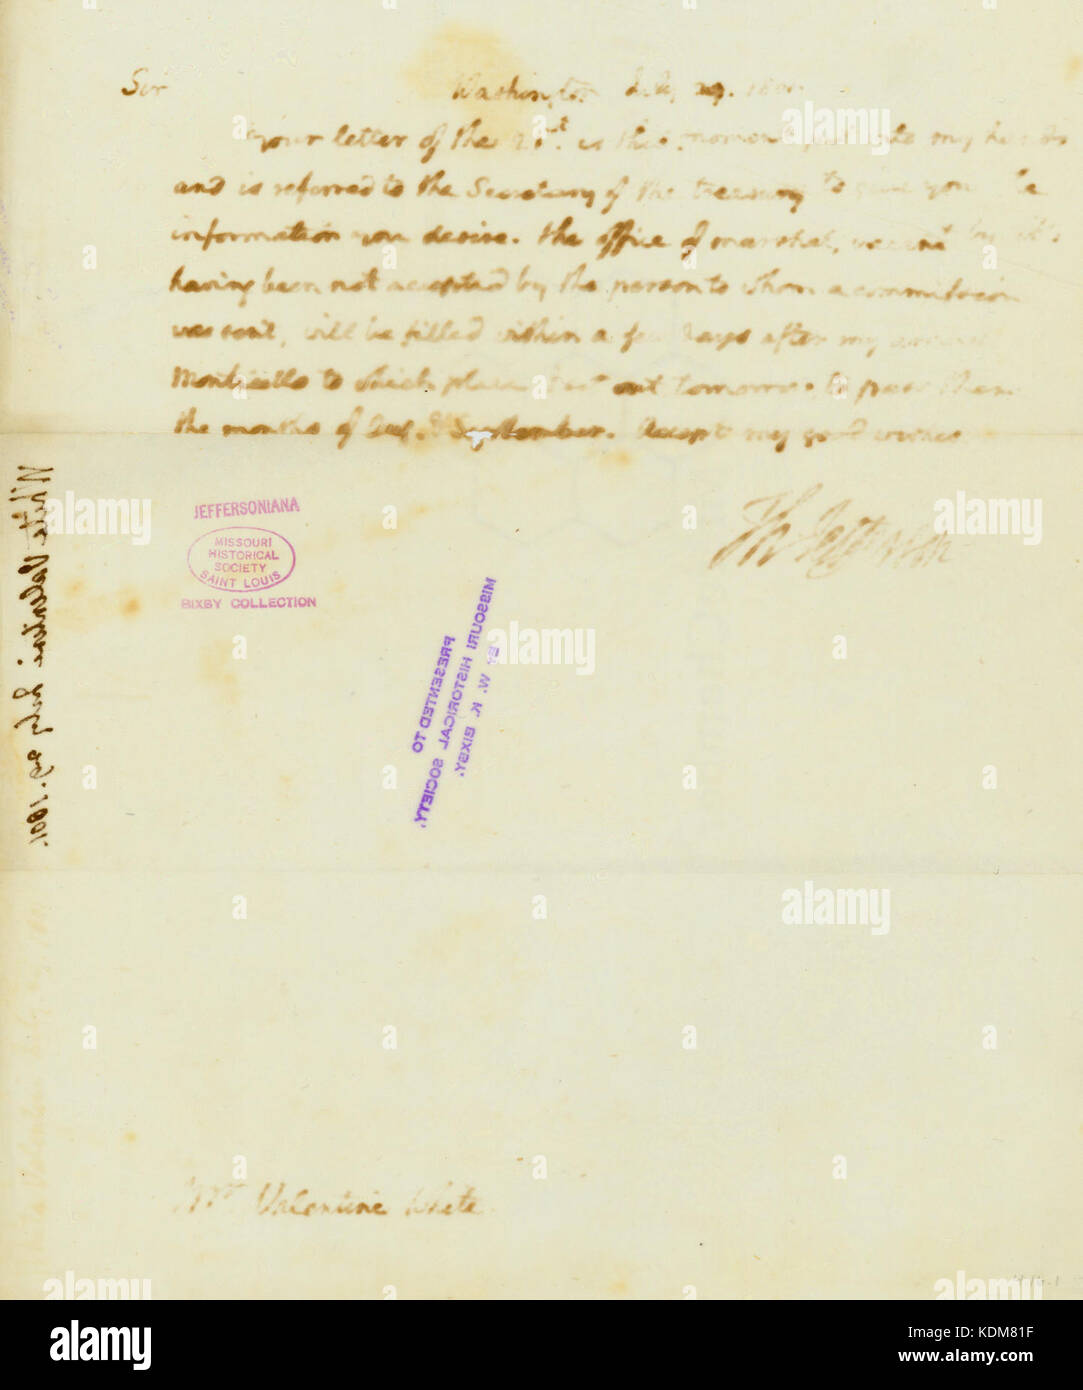 Sir
Washington July 29. 1801.
Your letter of the is this moment put into my hands
and is referred to the Secretary of the treasury to give you the
information you desire. the office of marshal, vacant by it's
having been not accepted by the person to whom a commission
was sent, will be filled within a few days after my arrival
Monticello to which place I set out tomorrow to pass there
the months of Aug. & September. Accept my good wishes
Th Jefferson
JEFFERSONIANA
MISSOURI
HISTORICAL
SOCIETY
SAINT LOUIS
BIXBY COLLECTION
PRESENTED TO
MISSOURI HISTORICAL SOCIETY.
BY W. K. BIXBY.
White Valentine. July 29. 1801.
Mr. Valentine White
alamy
Image ID: KDM81F
www.alamy.com